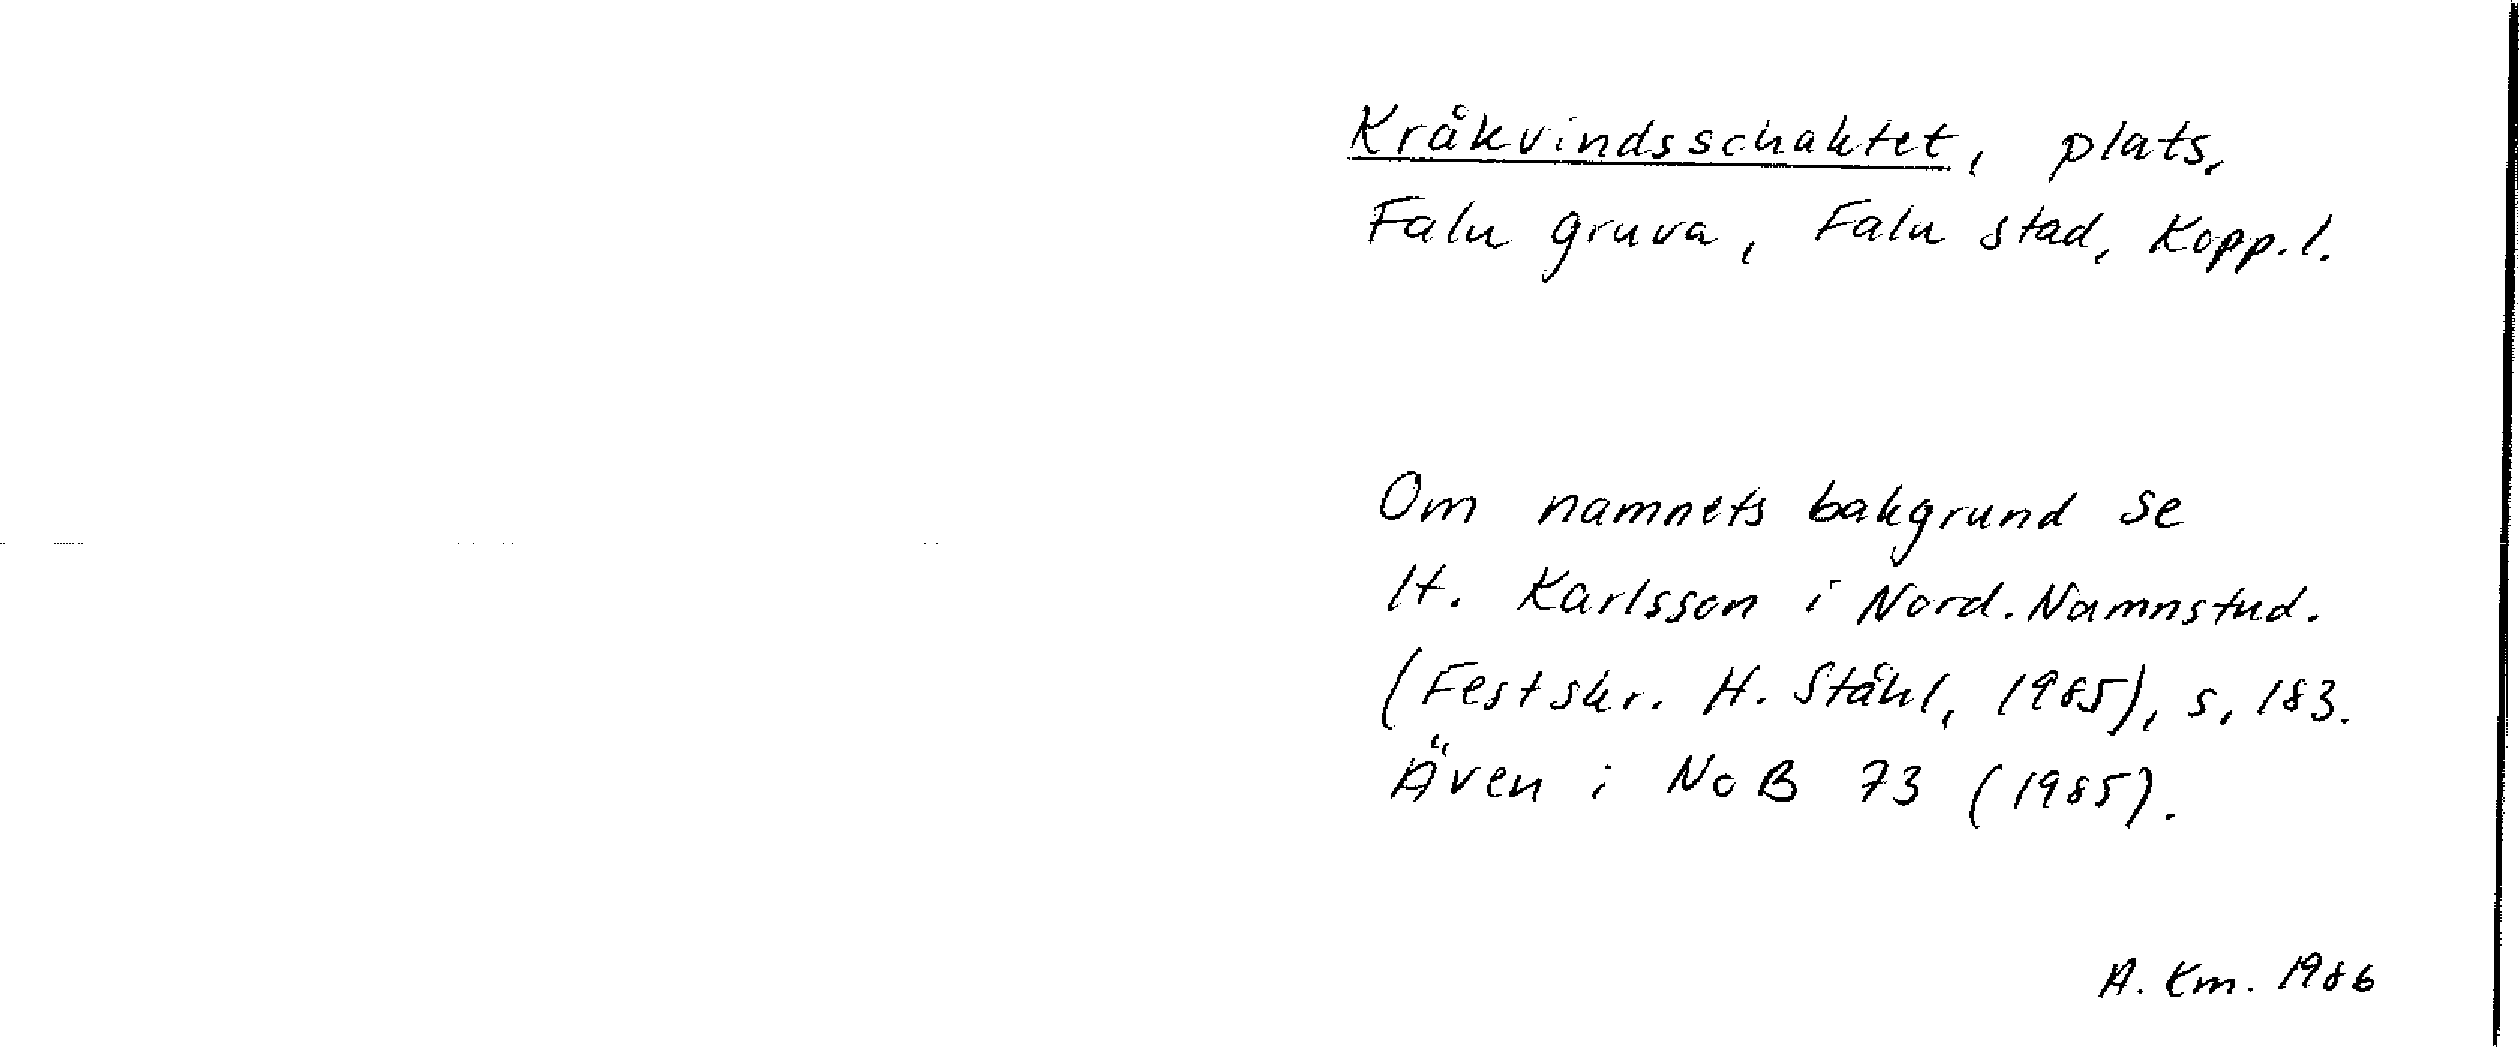 Kråkvindsschaktet, plats,
Falu gruva, Falu stad, Kopp.l.
Om namnets bakgrund se
H. Karlsson i Nord. Namnstud.
(Festskr. H. Ståhl, 1985), s. 183.
Även i NoB 73 (1985).
A. Km. 1986